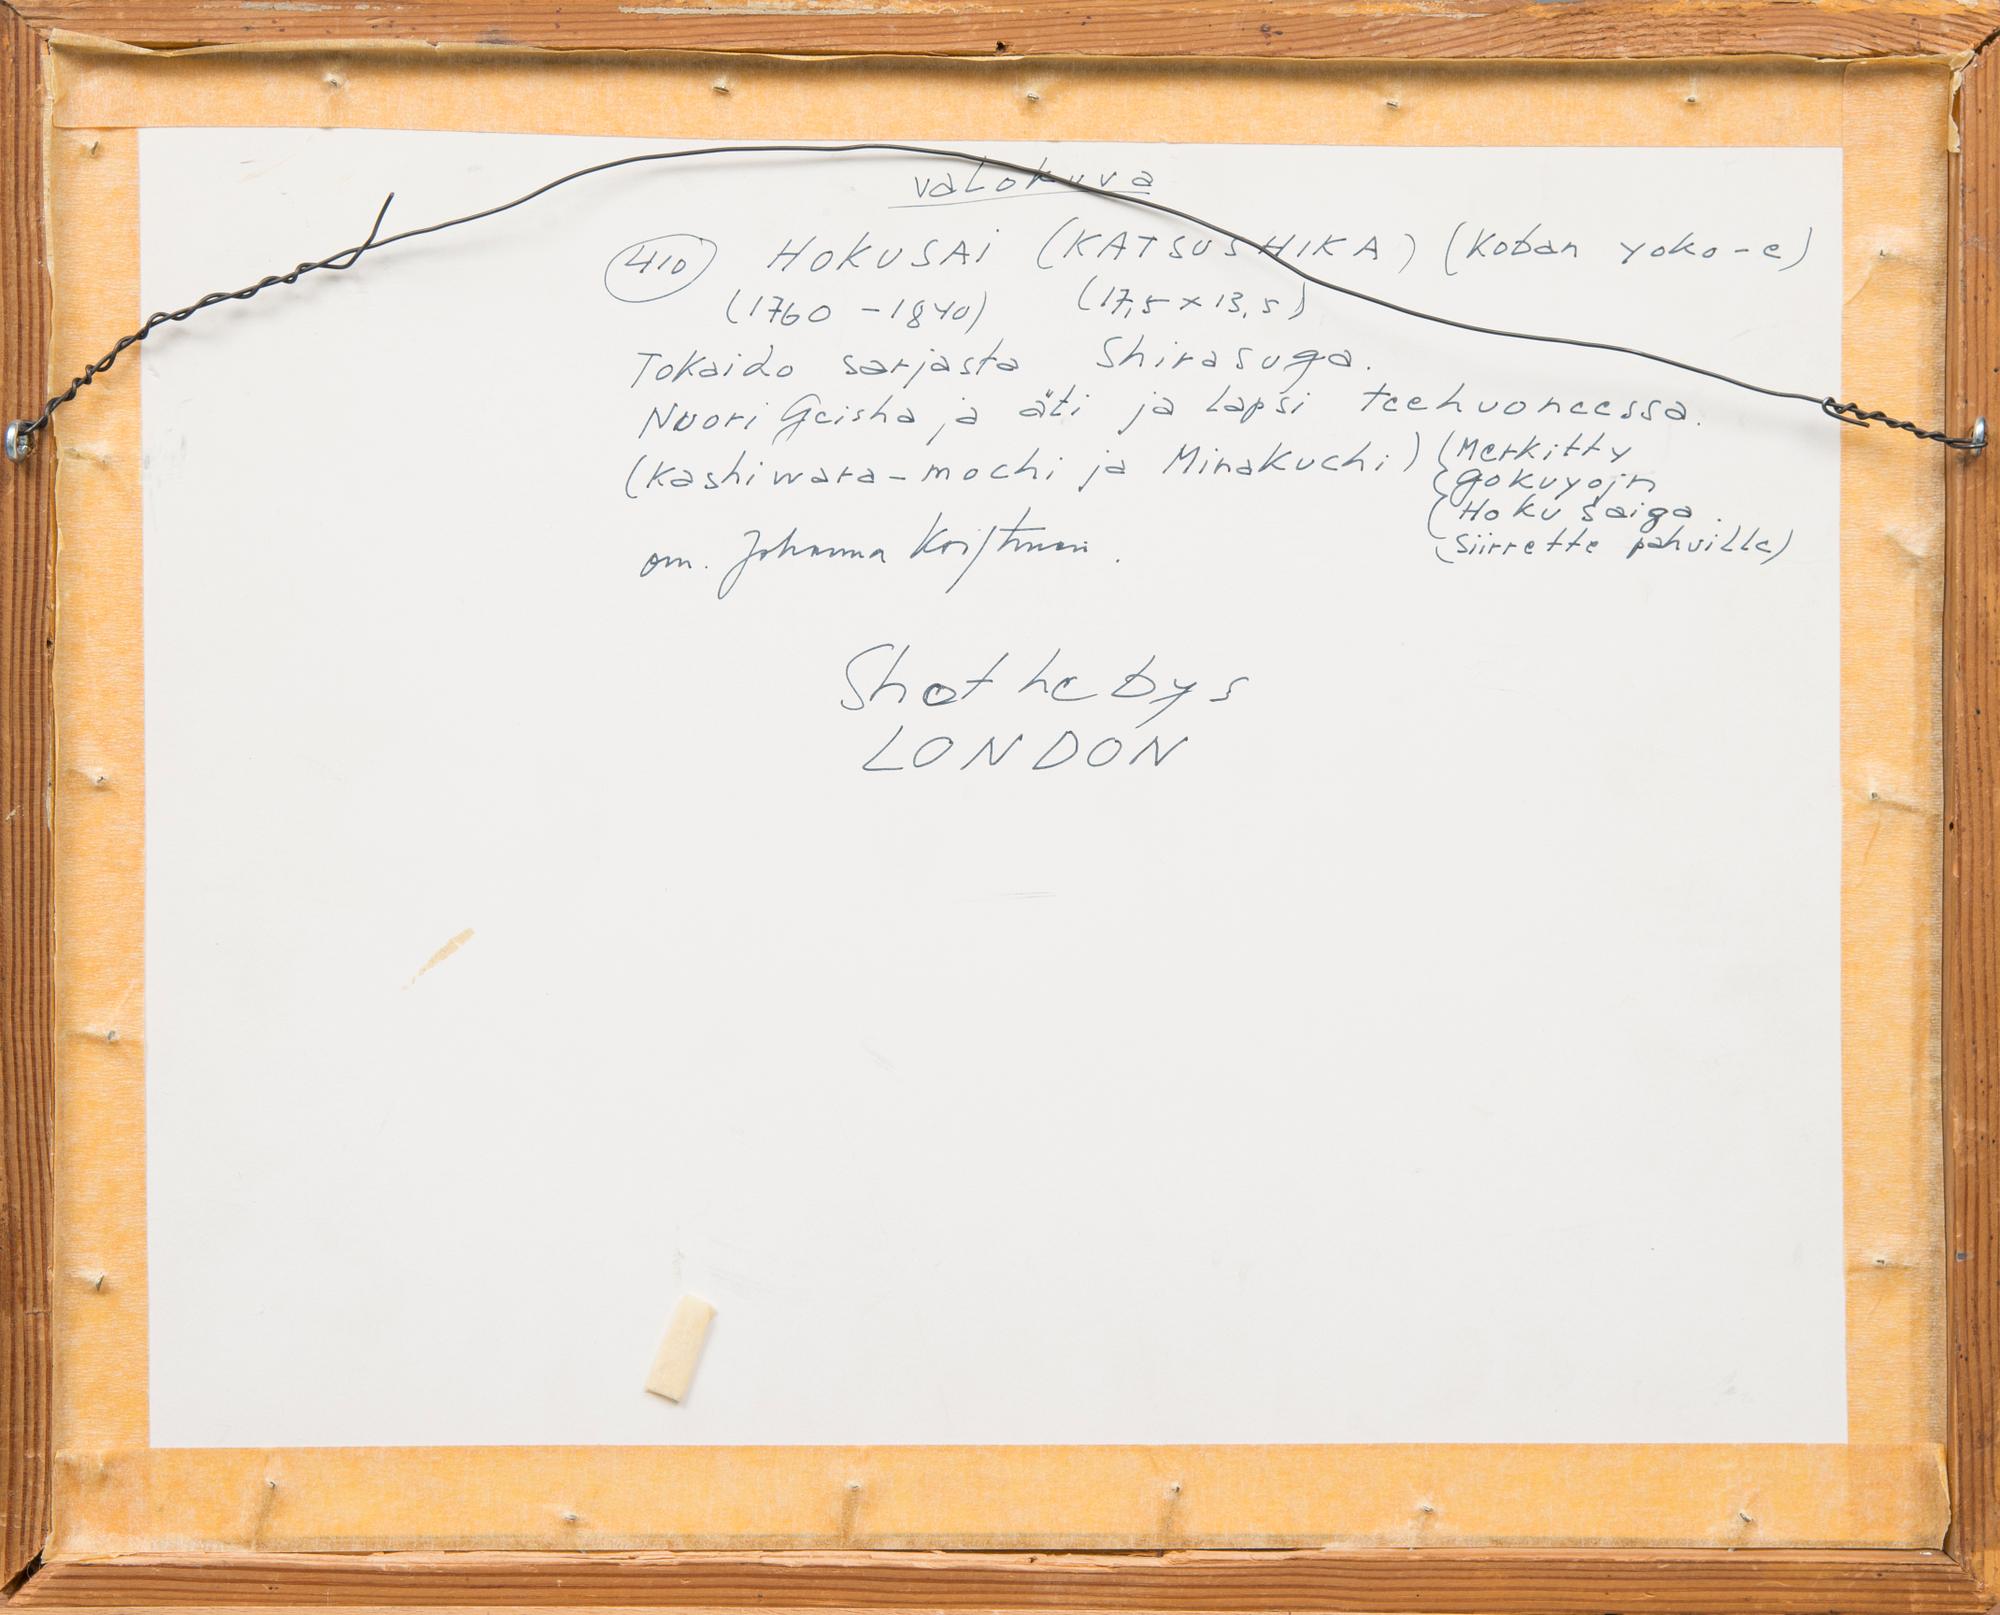 valokuva
410 HOKUSAI (KATSUSHIKA) (Koban yoko-e)
(1760 - 1840) (17,5 x 13,5)
Tokaido sarjasta Shirasuga.
Nuori Geisha ja äti ja lapsi teehuoneessa.
(Kashiwara-mochi ja Minakuchi) (Merkitty
Gokuyojn
Hokusaiga
siirrette pahville)
om. Johanna
Shothebys
LONDON